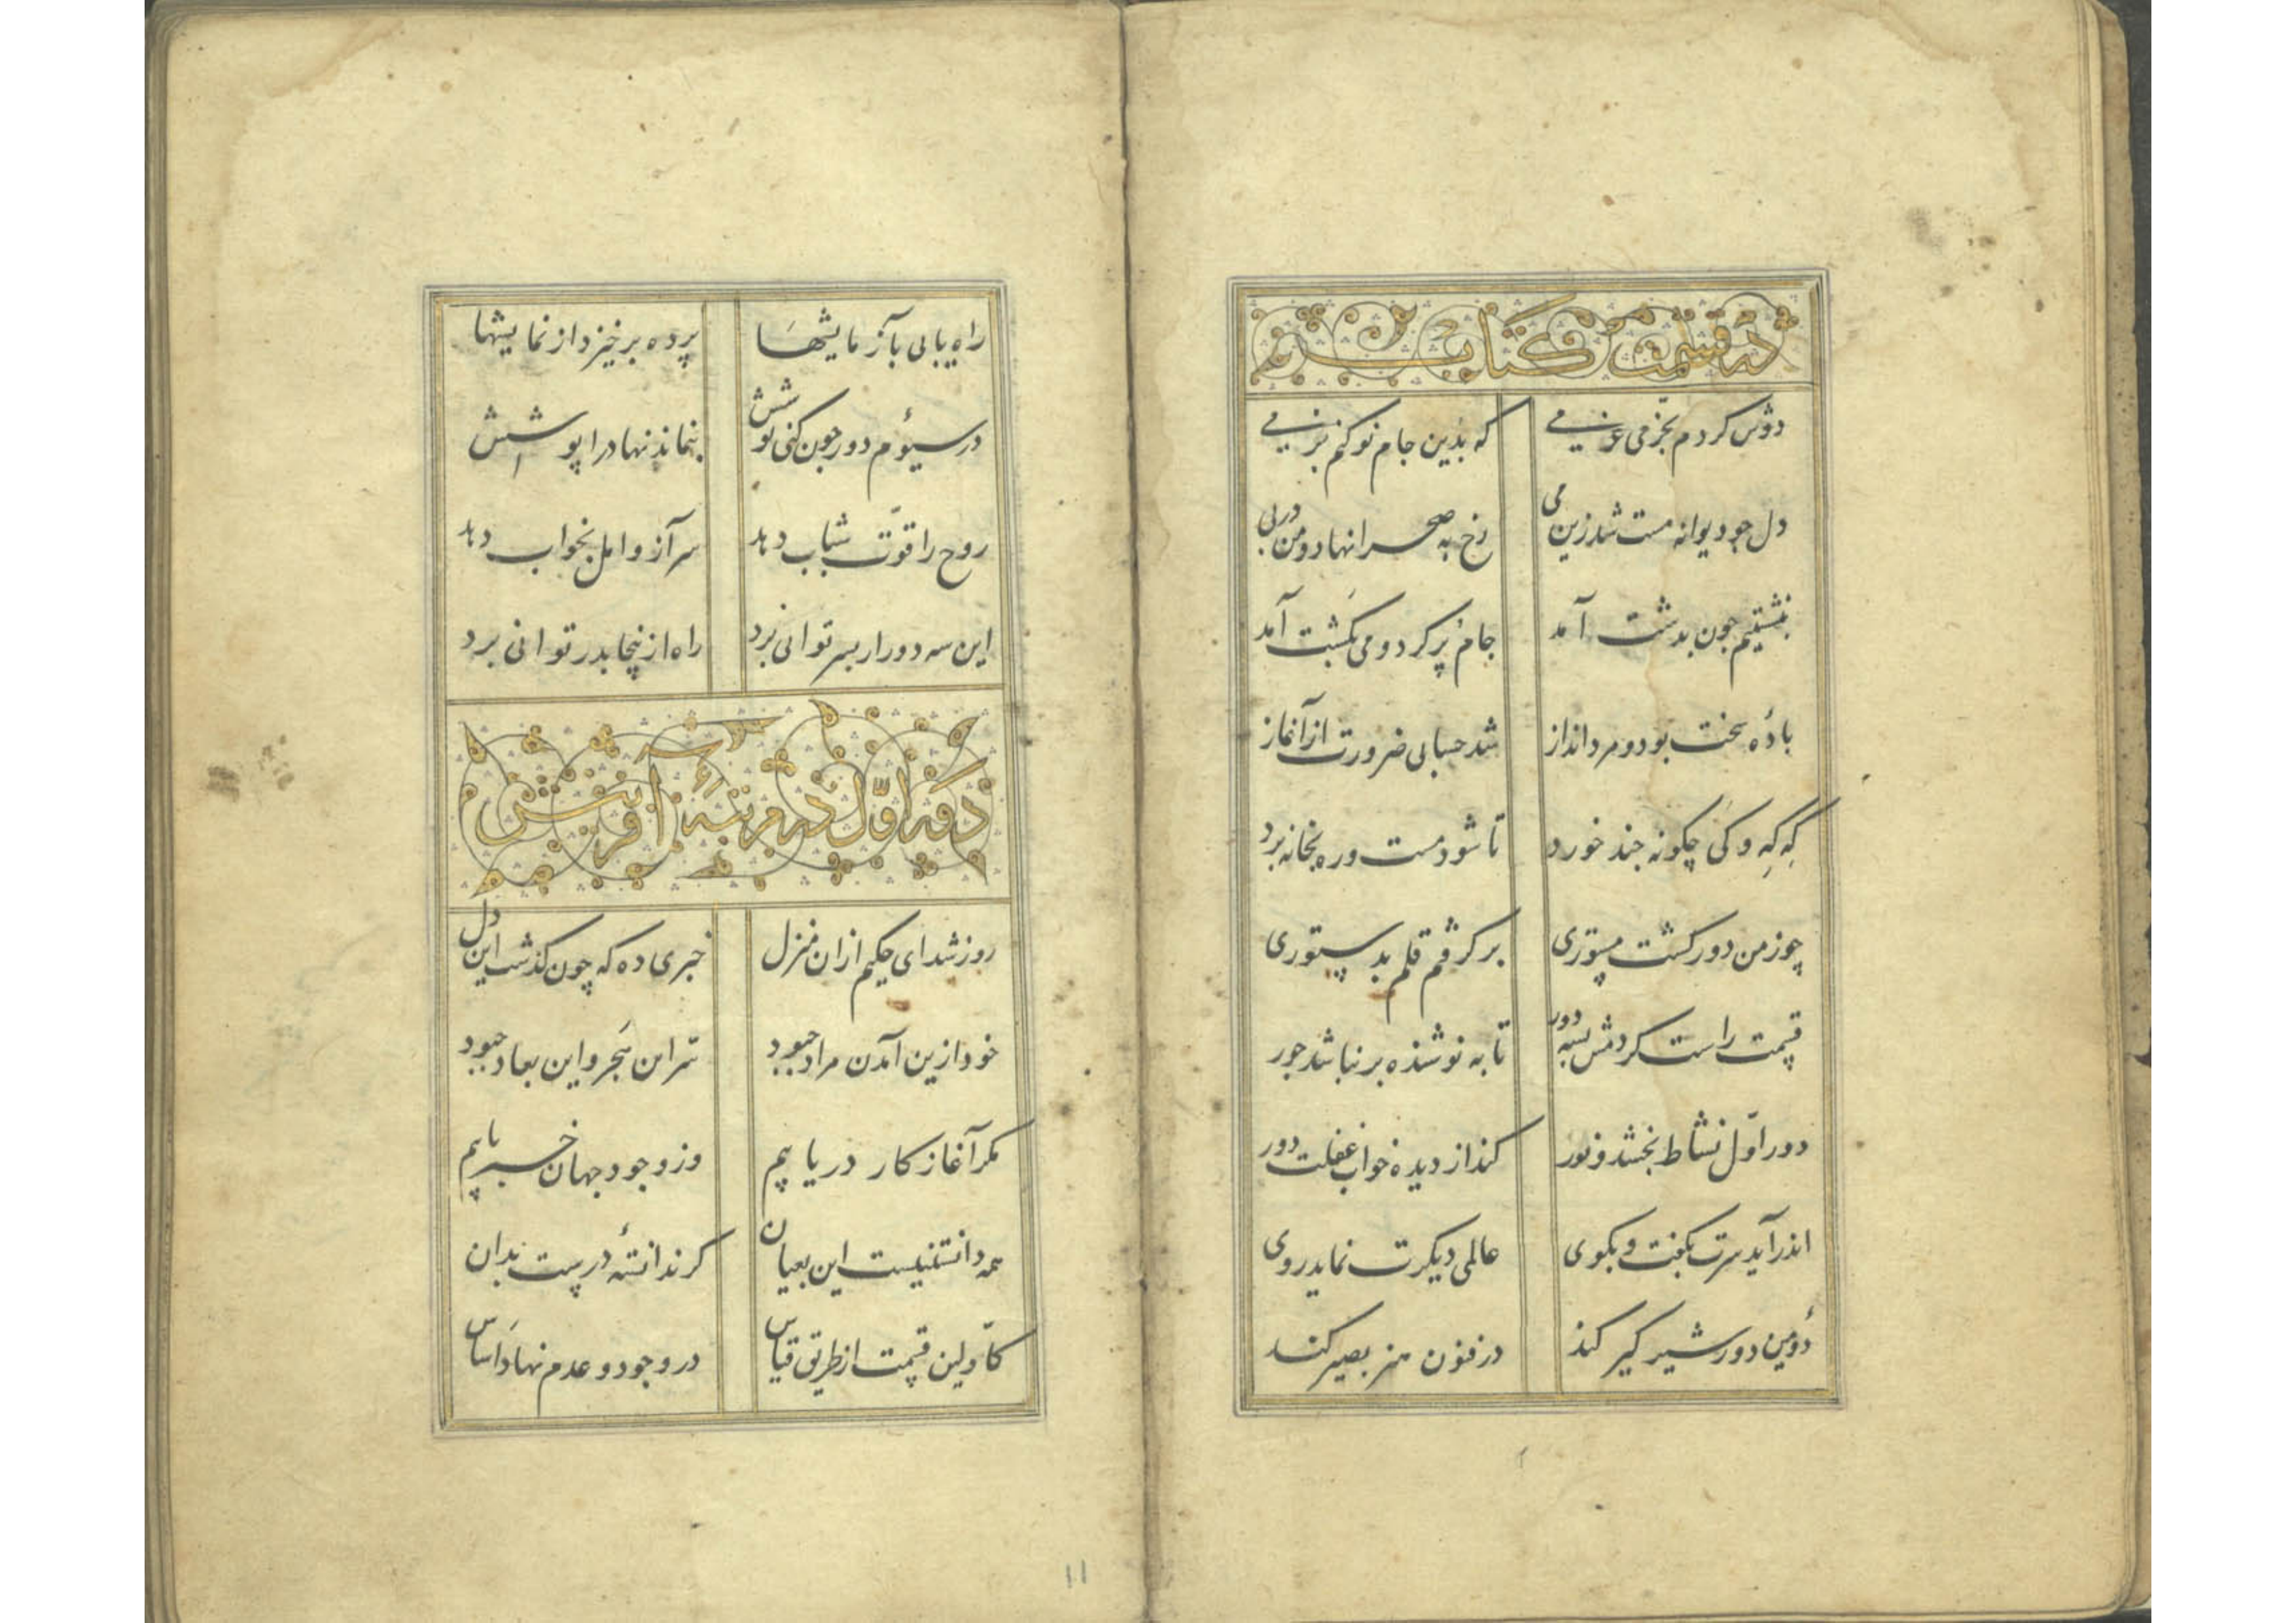 در قسمت کتاب
دوش کردم بخرمی عزمی که بدین جام نو کنم بزمی
دل چو دیوانه مست شد زین می رخ به صحرا نهاد و من در پی
بنشستیم چون بدشت آمد جام پر کرد و می بگشت آمد
بادهٔ سخت بود و مرد انداز شد حسابی ضرورت از آغاز
که که و کی چگونه چند خورد تا شود مست و ره بخانه برد
چو ز من دور گشت مستوری بر گرفتم قلم بدستوری
قسمت راست کردمش بسه دور تا به نوشنده بر نباشد جور
دور اوّل نشاط بخشد و نور کند از دیده خواب غفلت دور
اندر آید سرت بگفت و بگوی عالمی دیگرت نماید روی
دومین دور شیر گیر کند در فنون هنر بصیر کند
راه یابی بآزمایشها پرده برخیزد از نمایشها
در سیوم دور چون کنی نوشش بنماند نهاد را پوشش
روح را قوّت شباب دهد سر آز و امل بخواب دهد
این سه دور ار بسر توانی برد راه ازینجا بدر توانی برد
دور اوّل در مرتبهٔ آفرینش
روز شد ای حکیم ازان منزل خبری ده که چون گذشت این دل
خود ازین آمدن مراد چبود سرّ این هجر و این بعاد چبود
مگر آغاز کار دریابیم وز وجود جهان خبر یابیم
همه دانستنیست این بعیان گر ندانستهٔ درست بدان
کاوّلین قسمت از طریق قیاس در وجود و عدم نهاد اساس
۱۱